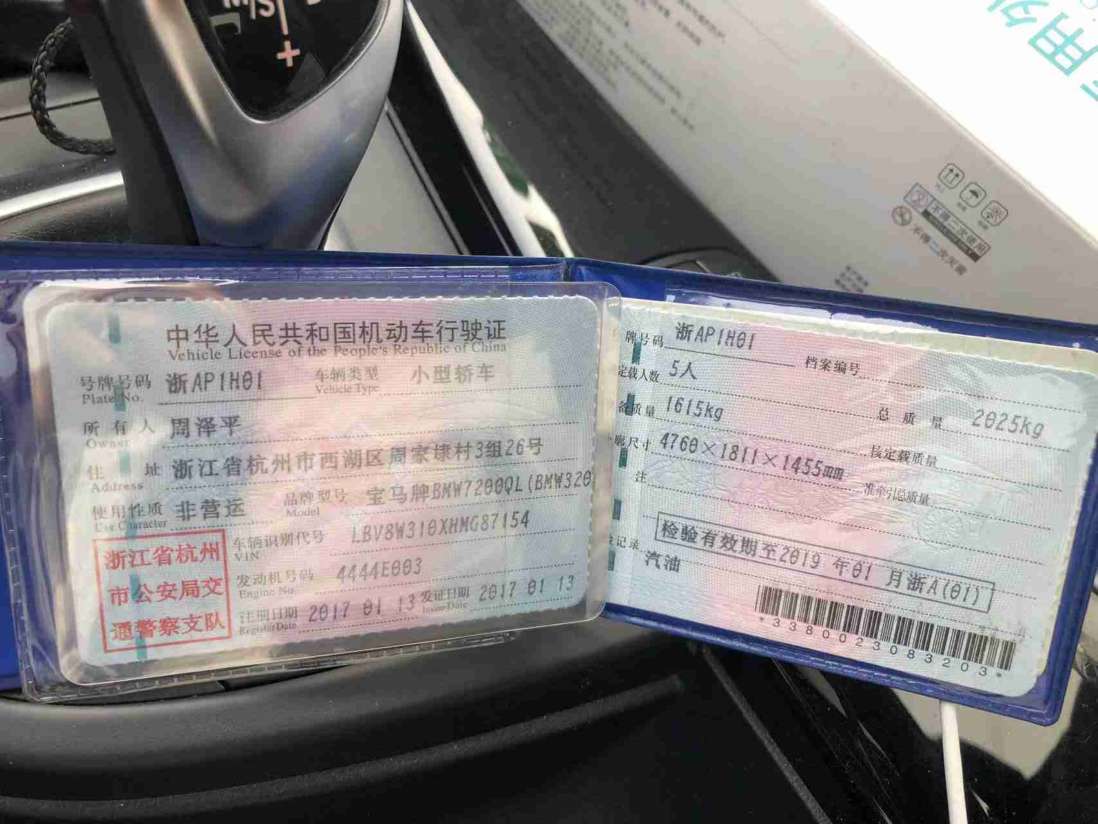 S/M
+
专用外
不得二次使用
不得二次买卖
中华人民共和国机动车行驶证
Vehicle License of the People's Republic of China
号牌号码 浙AP1H01 车辆类型 小型轿车
Plate No. Vehicle Type
所有人 周泽平
Owner
住址 浙江省杭州市西湖区周家埭村3组26号
Address
使用性质 非营运 品牌型号 宝马牌BMW7200QL(BMW320
Use Character Model
浙江省杭州
市公安局交
通警察支队
车辆识别代号 LBV8W310XHMG87154
VIN
发动机号码 4444E003
Engine No.
注册日期 2017 01 13 发证日期 2017 01 13
Register Date Issue Date
牌号码 浙AP1H01 档案编号
定载人数 5人
备质量 1615kg 总质量 2025kg
廓尺寸 4760×1811×1455mm 核定载质量
准牵引总质量
注
检验有效期至2019年01月浙A(01)
记录
汽油
*3380023083203*